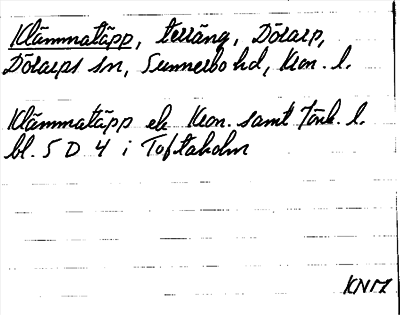 Klämmatäpp, terräng, Dörarp,
Dörarps sn, Sunnerbo hd, Kron. l.
Klämmatäpp ek Kron. samt Jönk. l.
bl. 5 D 4 i Toftaholm
KNM